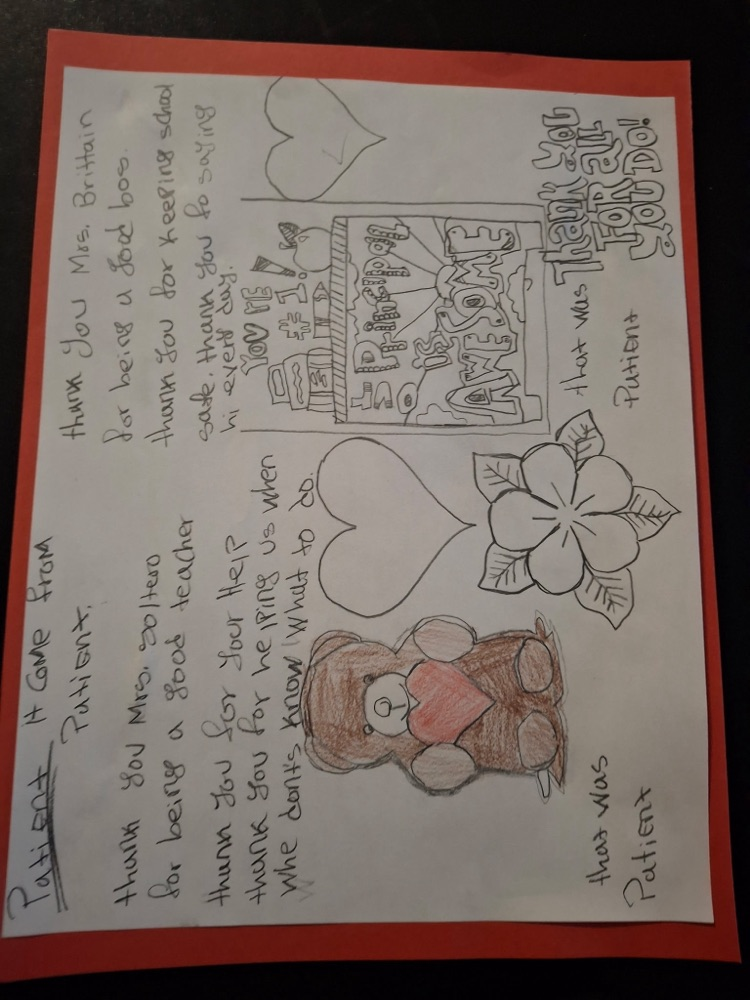 Patient it come from
Patient.
thank you Mrs. Soltero
for being a good teacher
thank you for your Help
thank you for helping us when
whe dont's know what to do.
that was
Patient
thank you Mrs. Brittain
for being a good bos.
thank you for keeping school
safe. thank you fo saying
hi every day.
YOU'RE
#1!
MY PRincipal
is
AWESOME
that was
Patient
Thank you
FOR all
YOU DO!